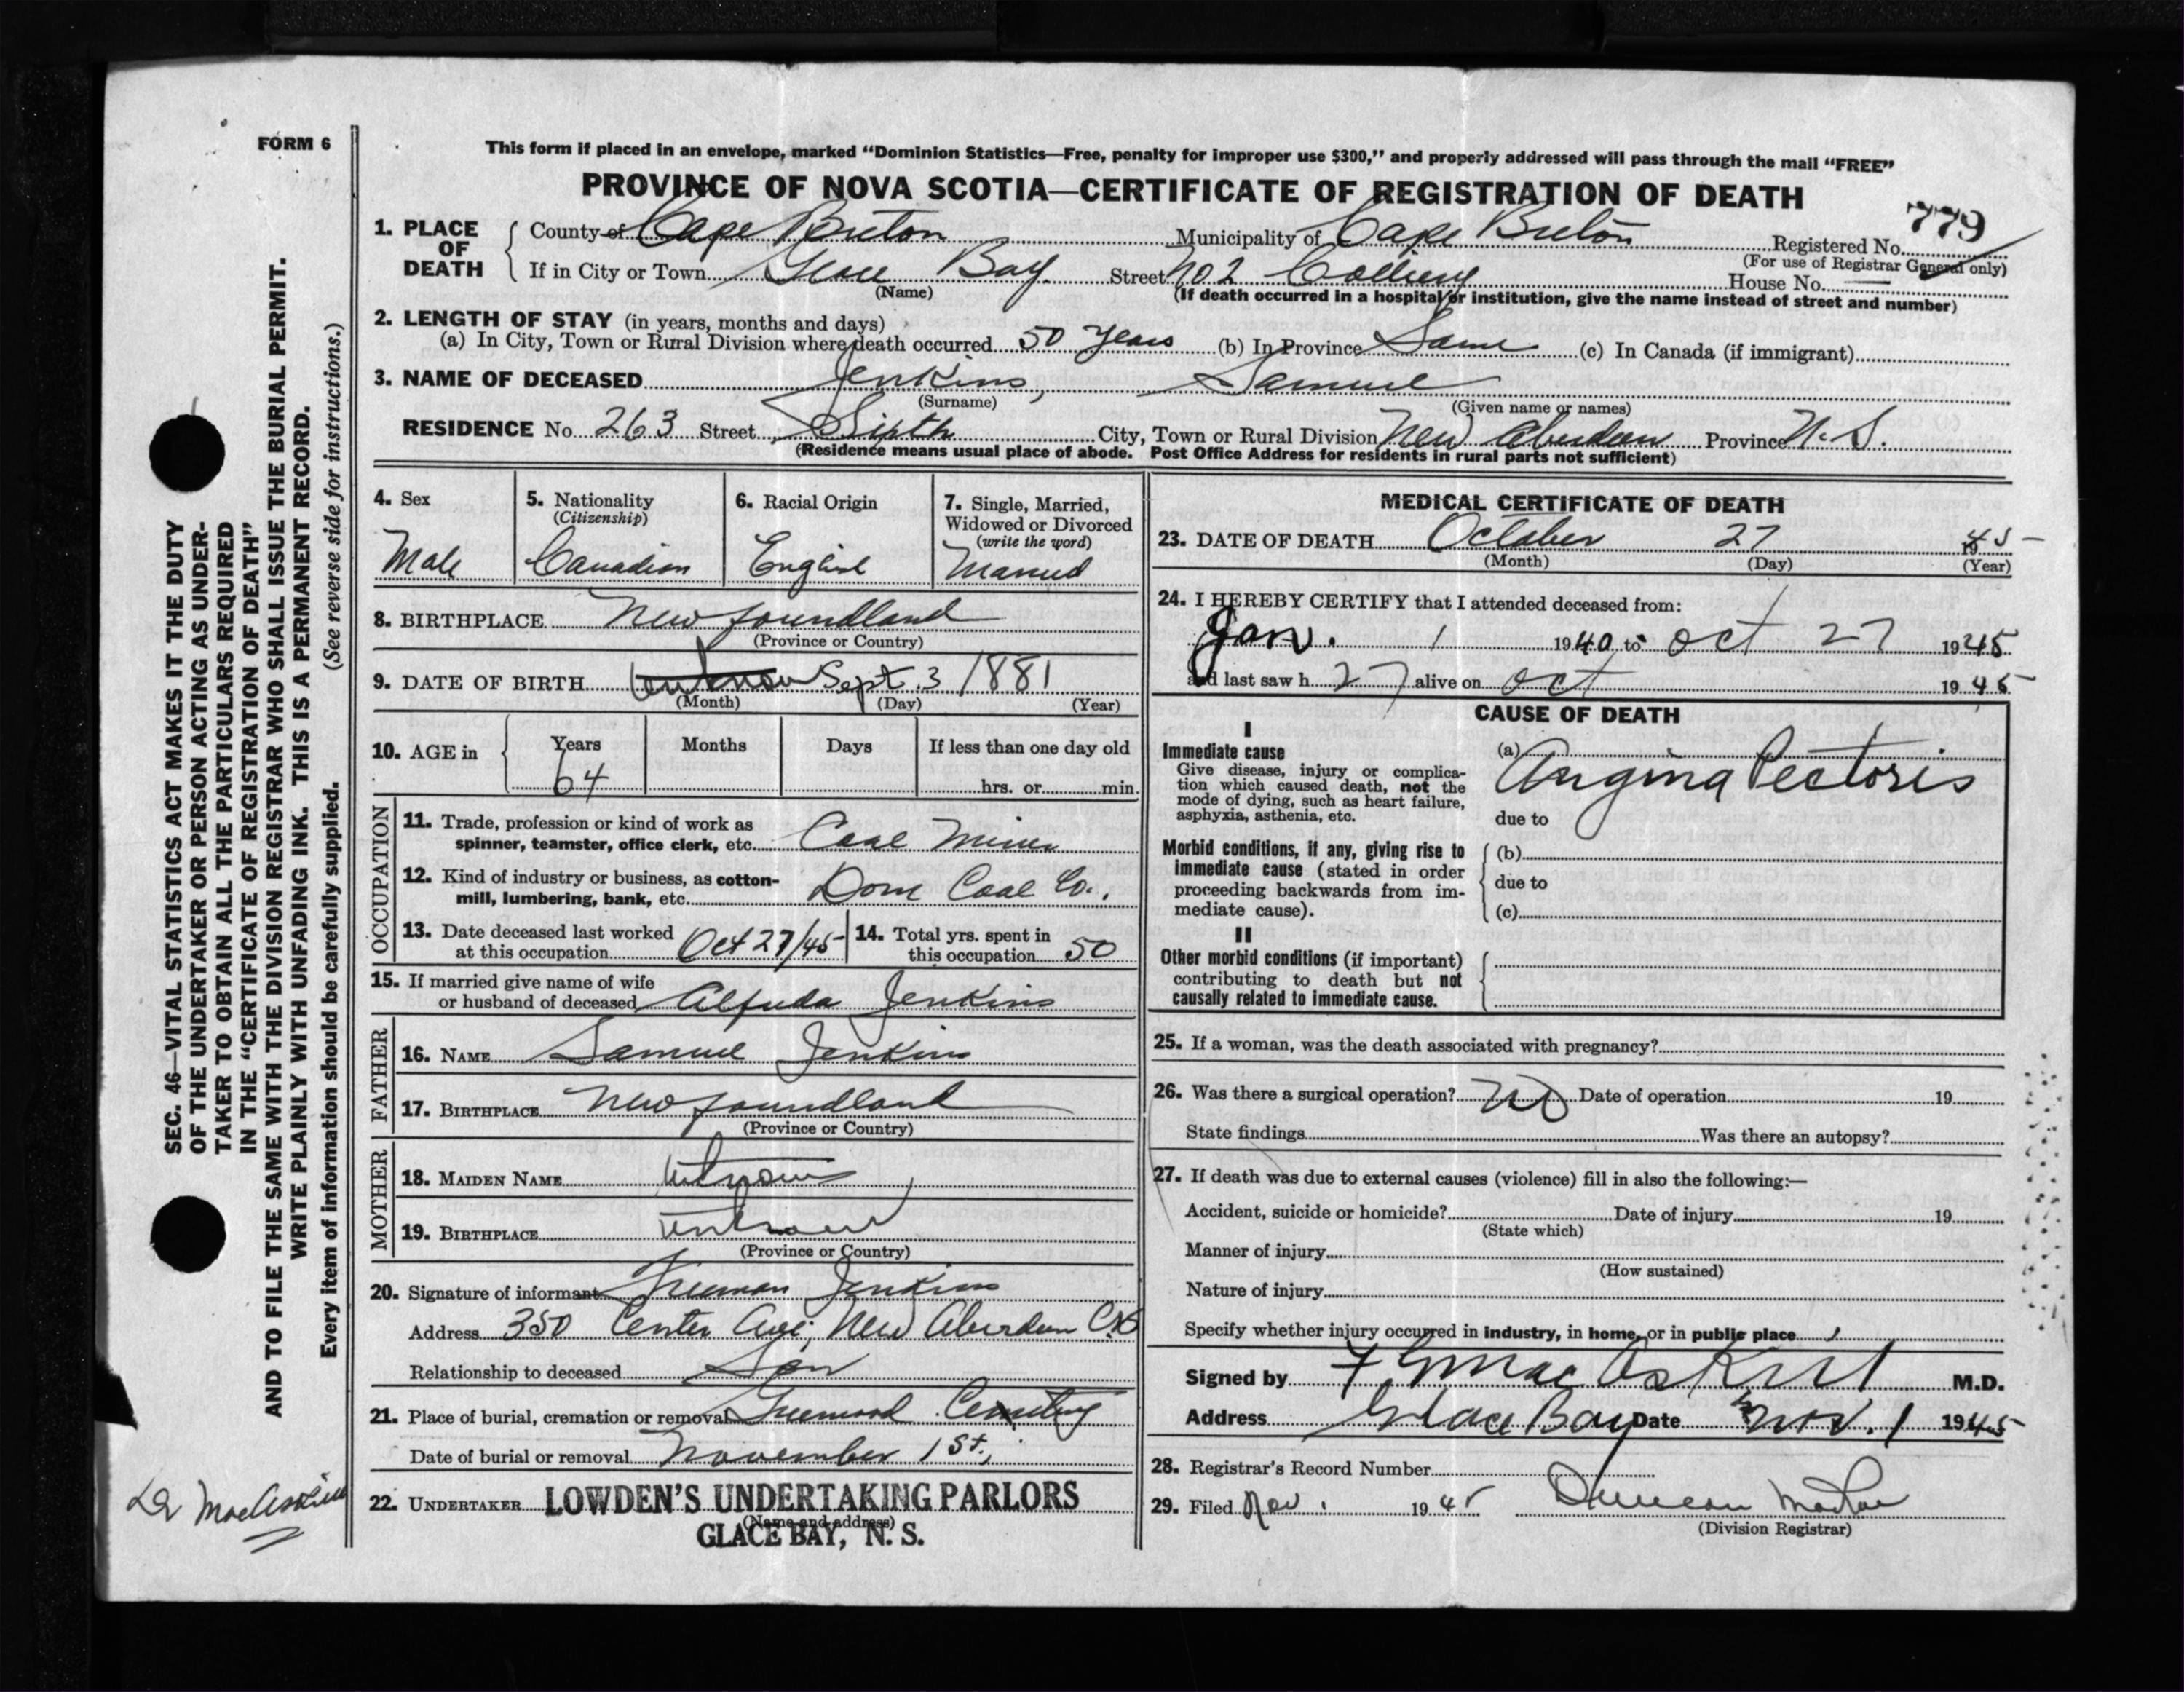 FORM 6
This form if placed in an envelope, marked "Dominion Statistics—Free, penalty for improper use $300," and properly addressed will pass through the mail "FREE"
PROVINCE OF NOVA SCOTIA—CERTIFICATE OF REGISTRATION OF DEATH
779
1. PLACE OF DEATH
County of Cape Breton Municipality of Cape Breton Registered No.
(For use of Registrar General only)
If in City or Town Glace Bay. Street No 2 Colliery House No. —
(Name)
(If death occurred in a hospital or institution, give the name instead of street and number)
2. LENGTH OF STAY (in years, months and days)
(a) In City, Town or Rural Division where death occurred 50 years (b) In Province Same (c) In Canada (if immigrant)
3. NAME OF DECEASED Jenkins, Samuel
(Surname) (Given name or names)
RESIDENCE No 263 Street Sixth City, Town or Rural Division New Aberdeen Province N.S.
(Residence means usual place of abode. Post Office Address for residents in rural parts not sufficient)
4. Sex
Male
5. Nationality
(Citizenship)
Canadian
6. Racial Origin
English
7. Single, Married,
Widowed or Divorced
(write the word)
Married
8. BIRTHPLACE Newfoundland
(Province or Country)
9. DATE OF BIRTH unknown Sept. 3 1881
(Month) (Day) (Year)
10. AGE in
Years Months Days If less than one day old
64 hrs. or min.
OCCUPATION
11. Trade, profession or kind of work as
spinner, teamster, office clerk, etc. Coal Miner
12. Kind of industry or business, as cotton-
mill, lumbering, bank, etc. Dom Coal Co.,
13. Date deceased last worked
at this occupation Oct 27/45
14. Total yrs. spent in
this occupation 50
15. If married give name of wife
or husband of deceased Alfreda Jenkins
FATHER
16. NAME Samuel Jenkins
17. BIRTHPLACE Newfoundland
(Province or Country)
MOTHER
18. MAIDEN NAME unknown
19. BIRTHPLACE unknown
(Province or Country)
20. Signature of informant Freeman Jenkins
Address 350 Center Ave, New Aberdeen C.B
Relationship to deceased Son
21. Place of burial, cremation or removal Greenwood Cemetery
Date of burial or removal November 1st,
22. UNDERTAKER LOWDEN'S UNDERTAKING PARLORS
(Name and address)
GLACE BAY, N. S.
MEDICAL CERTIFICATE OF DEATH
23. DATE OF DEATH October 27 1945
(Month) (Day) (Year)
24. I HEREBY CERTIFY that I attended deceased from:
Jan. 1 1940 to Oct 27 1945
and last saw h 27 alive on Oct 1945
CAUSE OF DEATH
I
Immediate cause
Give disease, injury or complica-
tion which caused death, not the
mode of dying, such as heart failure,
asphyxia, asthenia, etc.
(a) Angina Pectoris
due to
Morbid conditions, if any, giving rise to
immediate cause (stated in order
proceeding backwards from im-
mediate cause).
(b)
due to
(c)
II
Other morbid conditions (if important)
contributing to death but not
causally related to immediate cause.
25. If a woman, was the death associated with pregnancy?
26. Was there a surgical operation? No Date of operation 19
State findings Was there an autopsy?
27. If death was due to external causes (violence) fill in also the following:—
Accident, suicide or homicide? Date of injury 19
(State which)
Manner of injury
(How sustained)
Nature of injury
Specify whether injury occurred in industry, in home, or in public place
Signed by F G MacAskill M.D.
Address Glace Bay Date Nov. 1 1945
28. Registrar's Record Number
29. Filed Nov. 1945 Duncan
(Division Registrar)
SEC. 46—VITAL STATISTICS ACT MAKES IT THE DUTY
OF THE UNDERTAKER OR PERSON ACTING AS UNDER-
TAKER TO OBTAIN ALL THE PARTICULARS REQUIRED
IN THE "CERTIFICATE OF REGISTRATION OF DEATH"
AND TO FILE THE SAME WITH THE DIVISION REGISTRAR WHO SHALL ISSUE THE BURIAL PERMIT.
WRITE PLAINLY WITH UNFADING INK. THIS IS A PERMANENT RECORD.
Every item of information should be carefully supplied. (See reverse side for instructions.)
Dr MacAskill